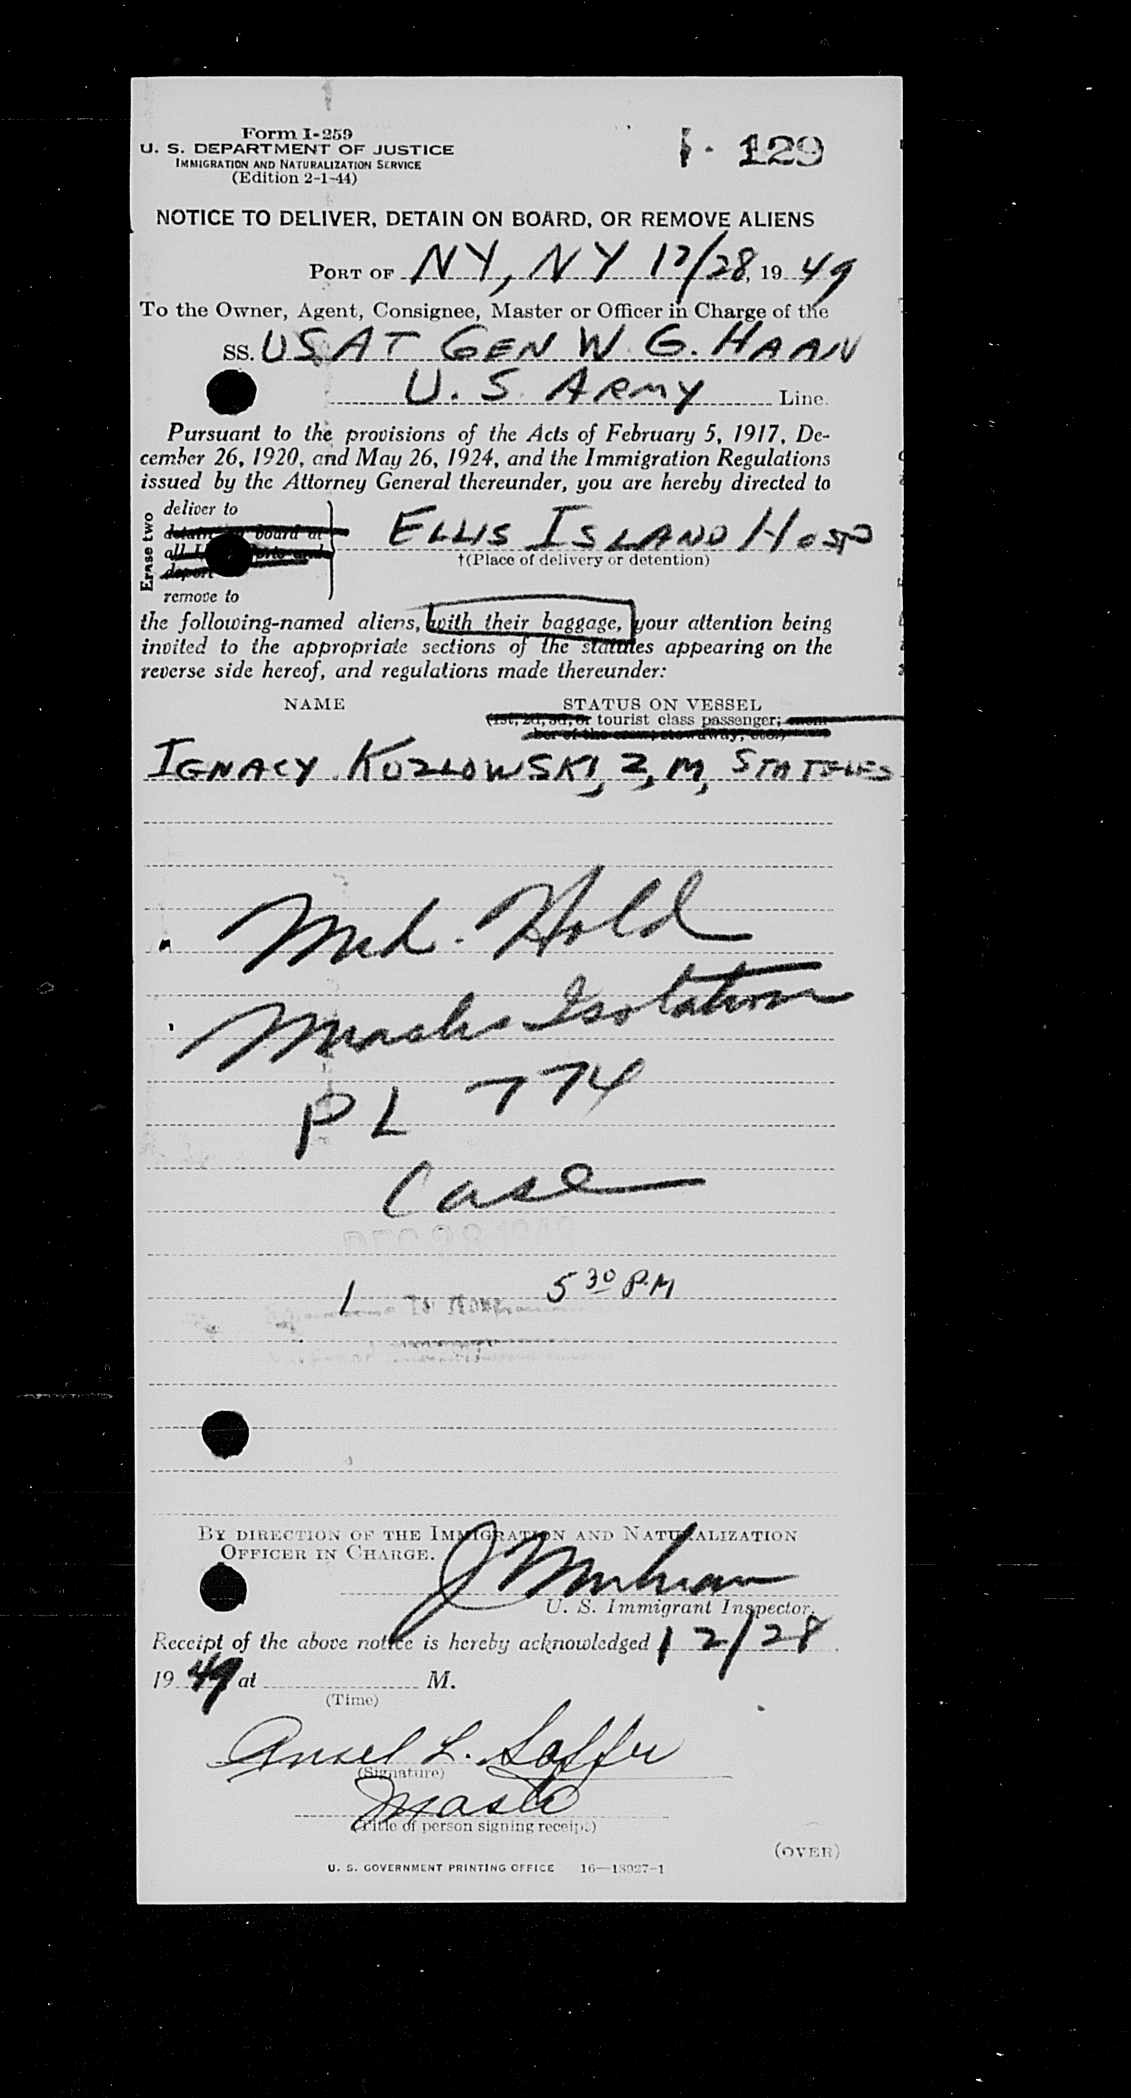 Form I-259
U. S. DEPARTMENT OF JUSTICE
IMMIGRATION AND NATURALIZATION SERVICE
(Edition 2-1-44)
I - 129
NOTICE TO DELIVER, DETAIN ON BOARD, OR REMOVE ALIENS
PORT OF NY, NY 12/28, 19 49
To the Owner, Agent, Consignee, Master or Officer in Charge of the
SS. USAT GEN W. G. HAAN
U. S. ARMY Line.
Pursuant to the provisions of the Acts of February 5, 1917, De-
cember 26, 1920, and May 26, 1924, and the Immigration Regulations
issued by the Attorney General thereunder, you are hereby directed to
Erase two
deliver to
detain on board at
deport
remove to
ELLIS ISLAND HOSP
†(Place of delivery or detention)
the following-named aliens, with their baggage, your attention being
invited to the appropriate sections of the statutes appearing on the
reverse side hereof, and regulations made thereunder:
NAME STATUS ON VESSEL
(1st, 2d, 3d, or tourist class passenger; mem-
ber of the crew; stowaway, etc.)
IGNACY KOZLOWSKI, 2, M, STATELES
Med. Hold
Measles Isolation
PL 774
Case
1 5 30 P.M
BY DIRECTION OF THE IMMIGRATION AND NATURALIZATION
OFFICER IN CHARGE.
U. S. Immigrant Inspector.
Receipt of the above notice is hereby acknowledged 12/28
19 49 at M.
(Time)
Ansel L.
(Signature)
Master
(Title of person signing receipt)
(OVER)
U. S. GOVERNMENT PRINTING OFFICE 16—18027-1